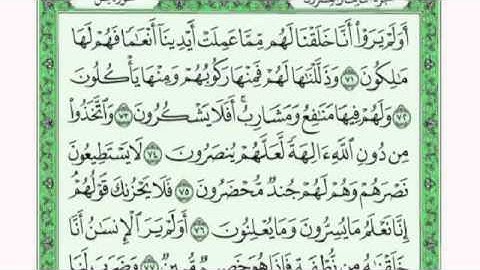 أَوَلَمْ يَرَوْا۟ أَنَّا خَلَقْنَا لَهُم مِّمَّا عَمِلَتْ أَيْدِينَآ أَنْعَـٰمًا فَهُمْ لَهَا
مَـٰلِكُونَ ٧١ وَذَلَّلْنَـٰهَا لَهُمْ فَمِنْهَا رَكُوبُهُمْ وَمِنْهَا يَأْكُلُونَ
٧٢ وَلَهُمْ فِيهَا مَنَـٰفِعُ وَمَشَارِبُ ۖ أَفَلَا يَشْكُرُونَ ٧٣ وَٱتَّخَذُوا۟
مِن دُونِ ٱللَّهِ ءَالِهَةً لَّعَلَّهُمْ يُنصَرُونَ ٧٤ لَا يَسْتَطِيعُونَ
نَصْرَهُمْ وَهُمْ لَهُمْ جُندٌ مُّحْضَرُونَ ٧٥ فَلَا يَحْزُنكَ قَوْلُهُمْ ۘ
إِنَّا نَعْلَمُ مَا يُسِرُّونَ وَمَا يُعْلِنُونَ ٧٦ أَوَلَمْ يَرَ ٱلْإِنسَـٰنُ أَنَّا
خَلَقْنَـٰهُ مِن نُّطْفَةٍ فَإِذَا هُوَ خَصِيمٌ مُّبِينٌ ٧٧ وَضَرَبَ لَنَا